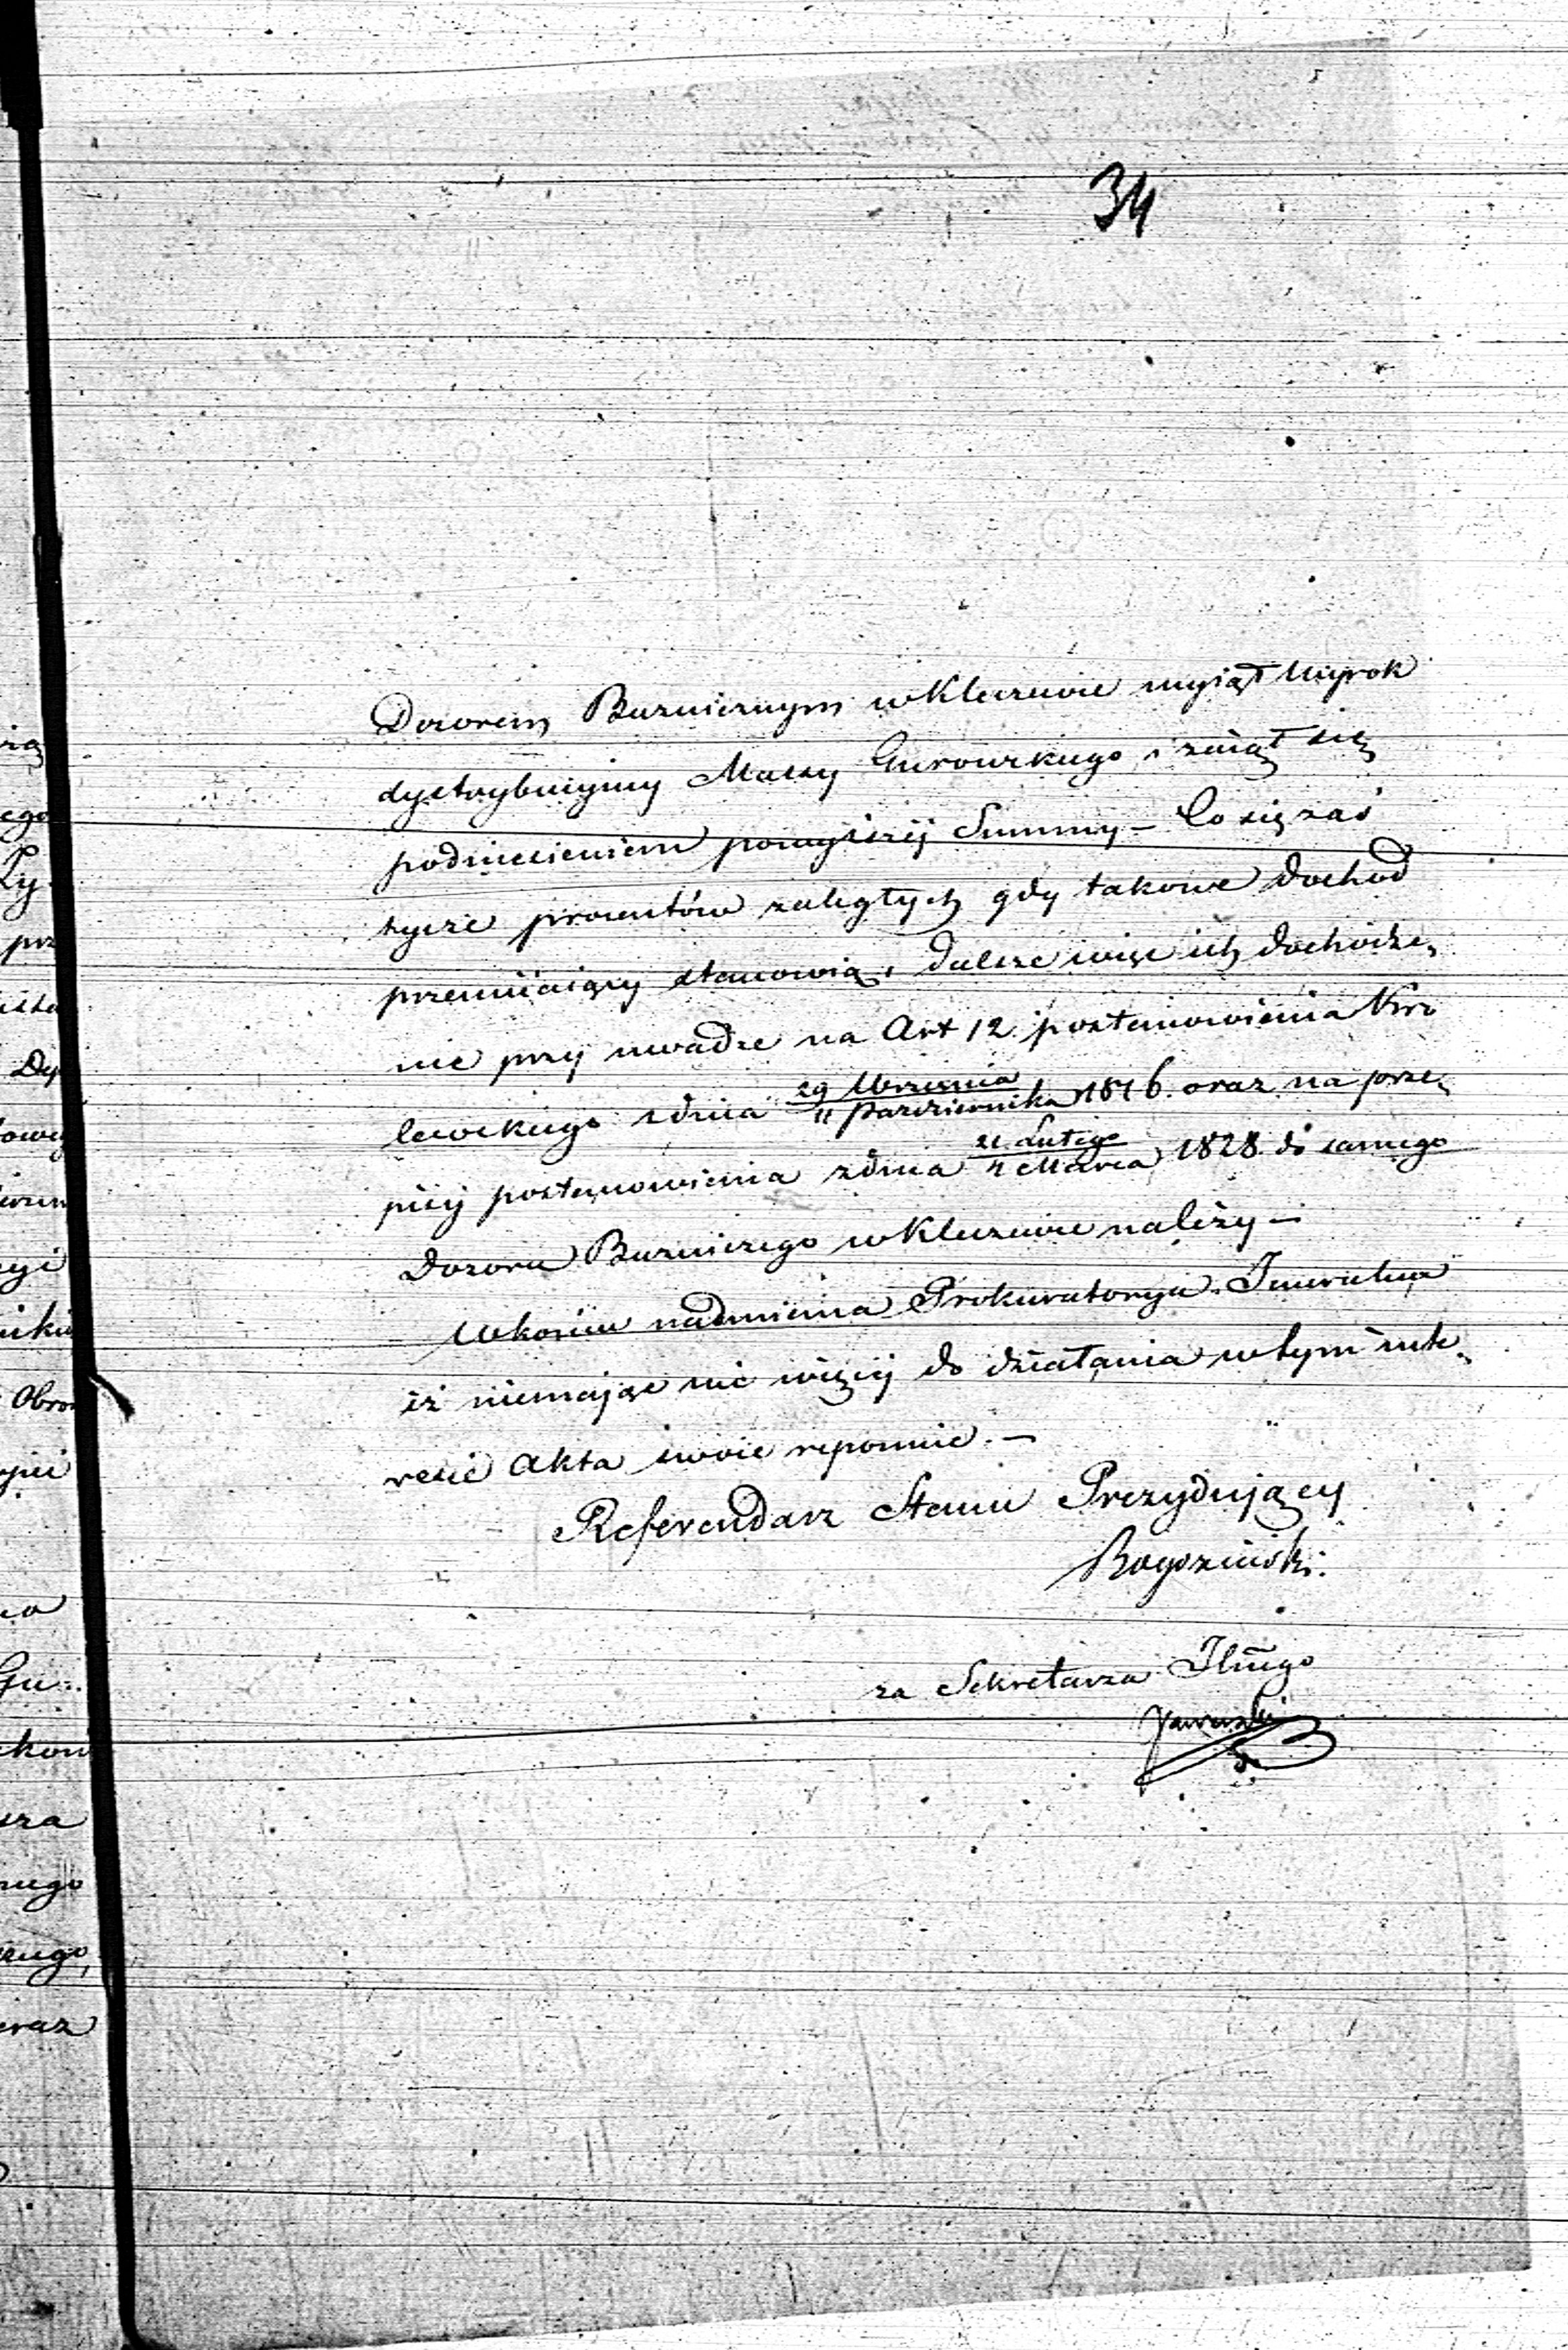 34
Dozorem Buznicznym w Kleczewie wyiął Wyrok
dystrybucyjny Massy Gurowskiego, i zaiął się
podniesieniem powyższej Summy – Co się zaś
tycze procentów zaległych gdy takowe dochód
przemiiaiący stanowią, dalsze więc ich dochodze„
nie przy uwadze na Art 12 postanowienia Kró
lewskiego zdnia 29 Września / 11 Października 1816. oraz na prze„
pisy postanowienia zdnia 21. Lutego / 4 Marca 1828. do samego
Dozoru Buzniczego w Kleczewie należy –
Wkońcu nadmienia Prokuratorya Jeneralna
iż niemając nic więcej do działania wtym inte„
resie Akta swoie reponuie. –
Referendarz Stanu Prezydujący
za Sekretarza Jlnego
ego
prz
Obron
nego
oraz